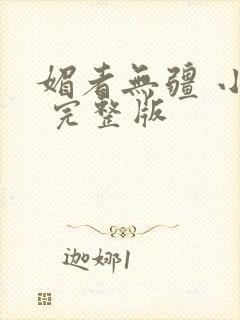 媚者無疆 小
完整版
迦娜1